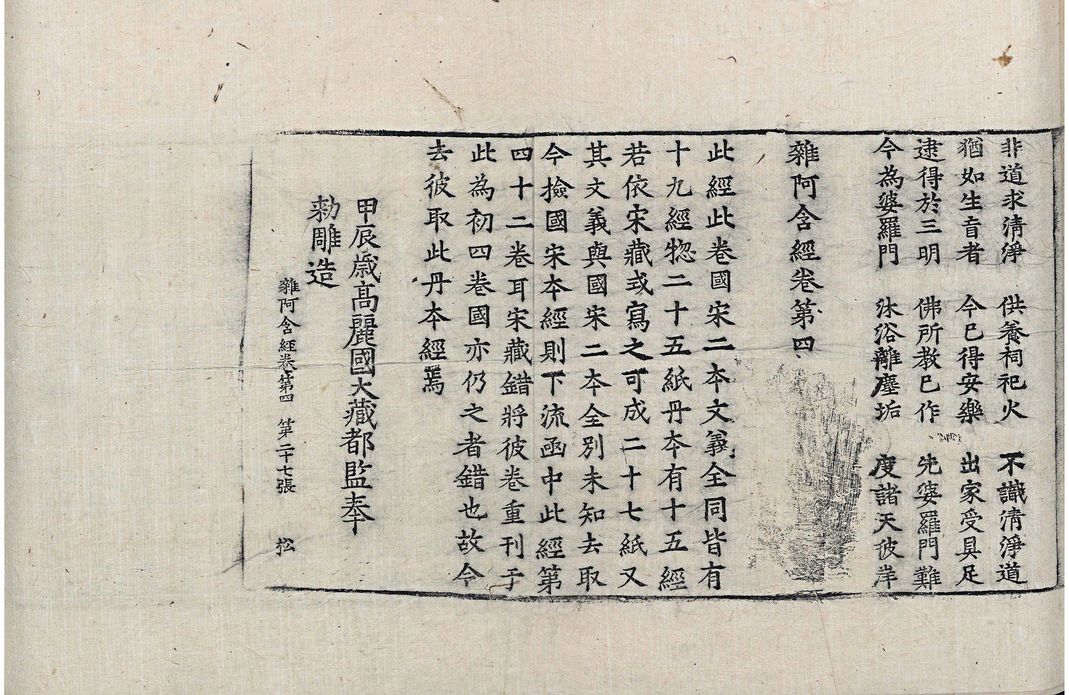 非道求清淨 供養祠祀火 不識清淨道
猶如生盲者 今已得安樂 出家受具足
逮得於三明 佛所教已作 先婆羅門難
今為婆羅門 沐浴離塵垢 度諸天彼岸
雜阿含經卷第四
此經此卷國宋二本文義全同皆有
十九經惣二十五紙丹本有十五經
若依宋藏或寫之可成二十七紙又
其文義與國宋二本全別未知去取
今撿國宋本經則下流函中此經第
四十二卷耳宋藏錯將彼卷重刊于
此為初四卷國亦仍之者錯也故今
去彼取此丹本經焉
甲辰歲高麗國大藏都監奉
勅雕造
雜阿含經卷第四 第二十七張 松